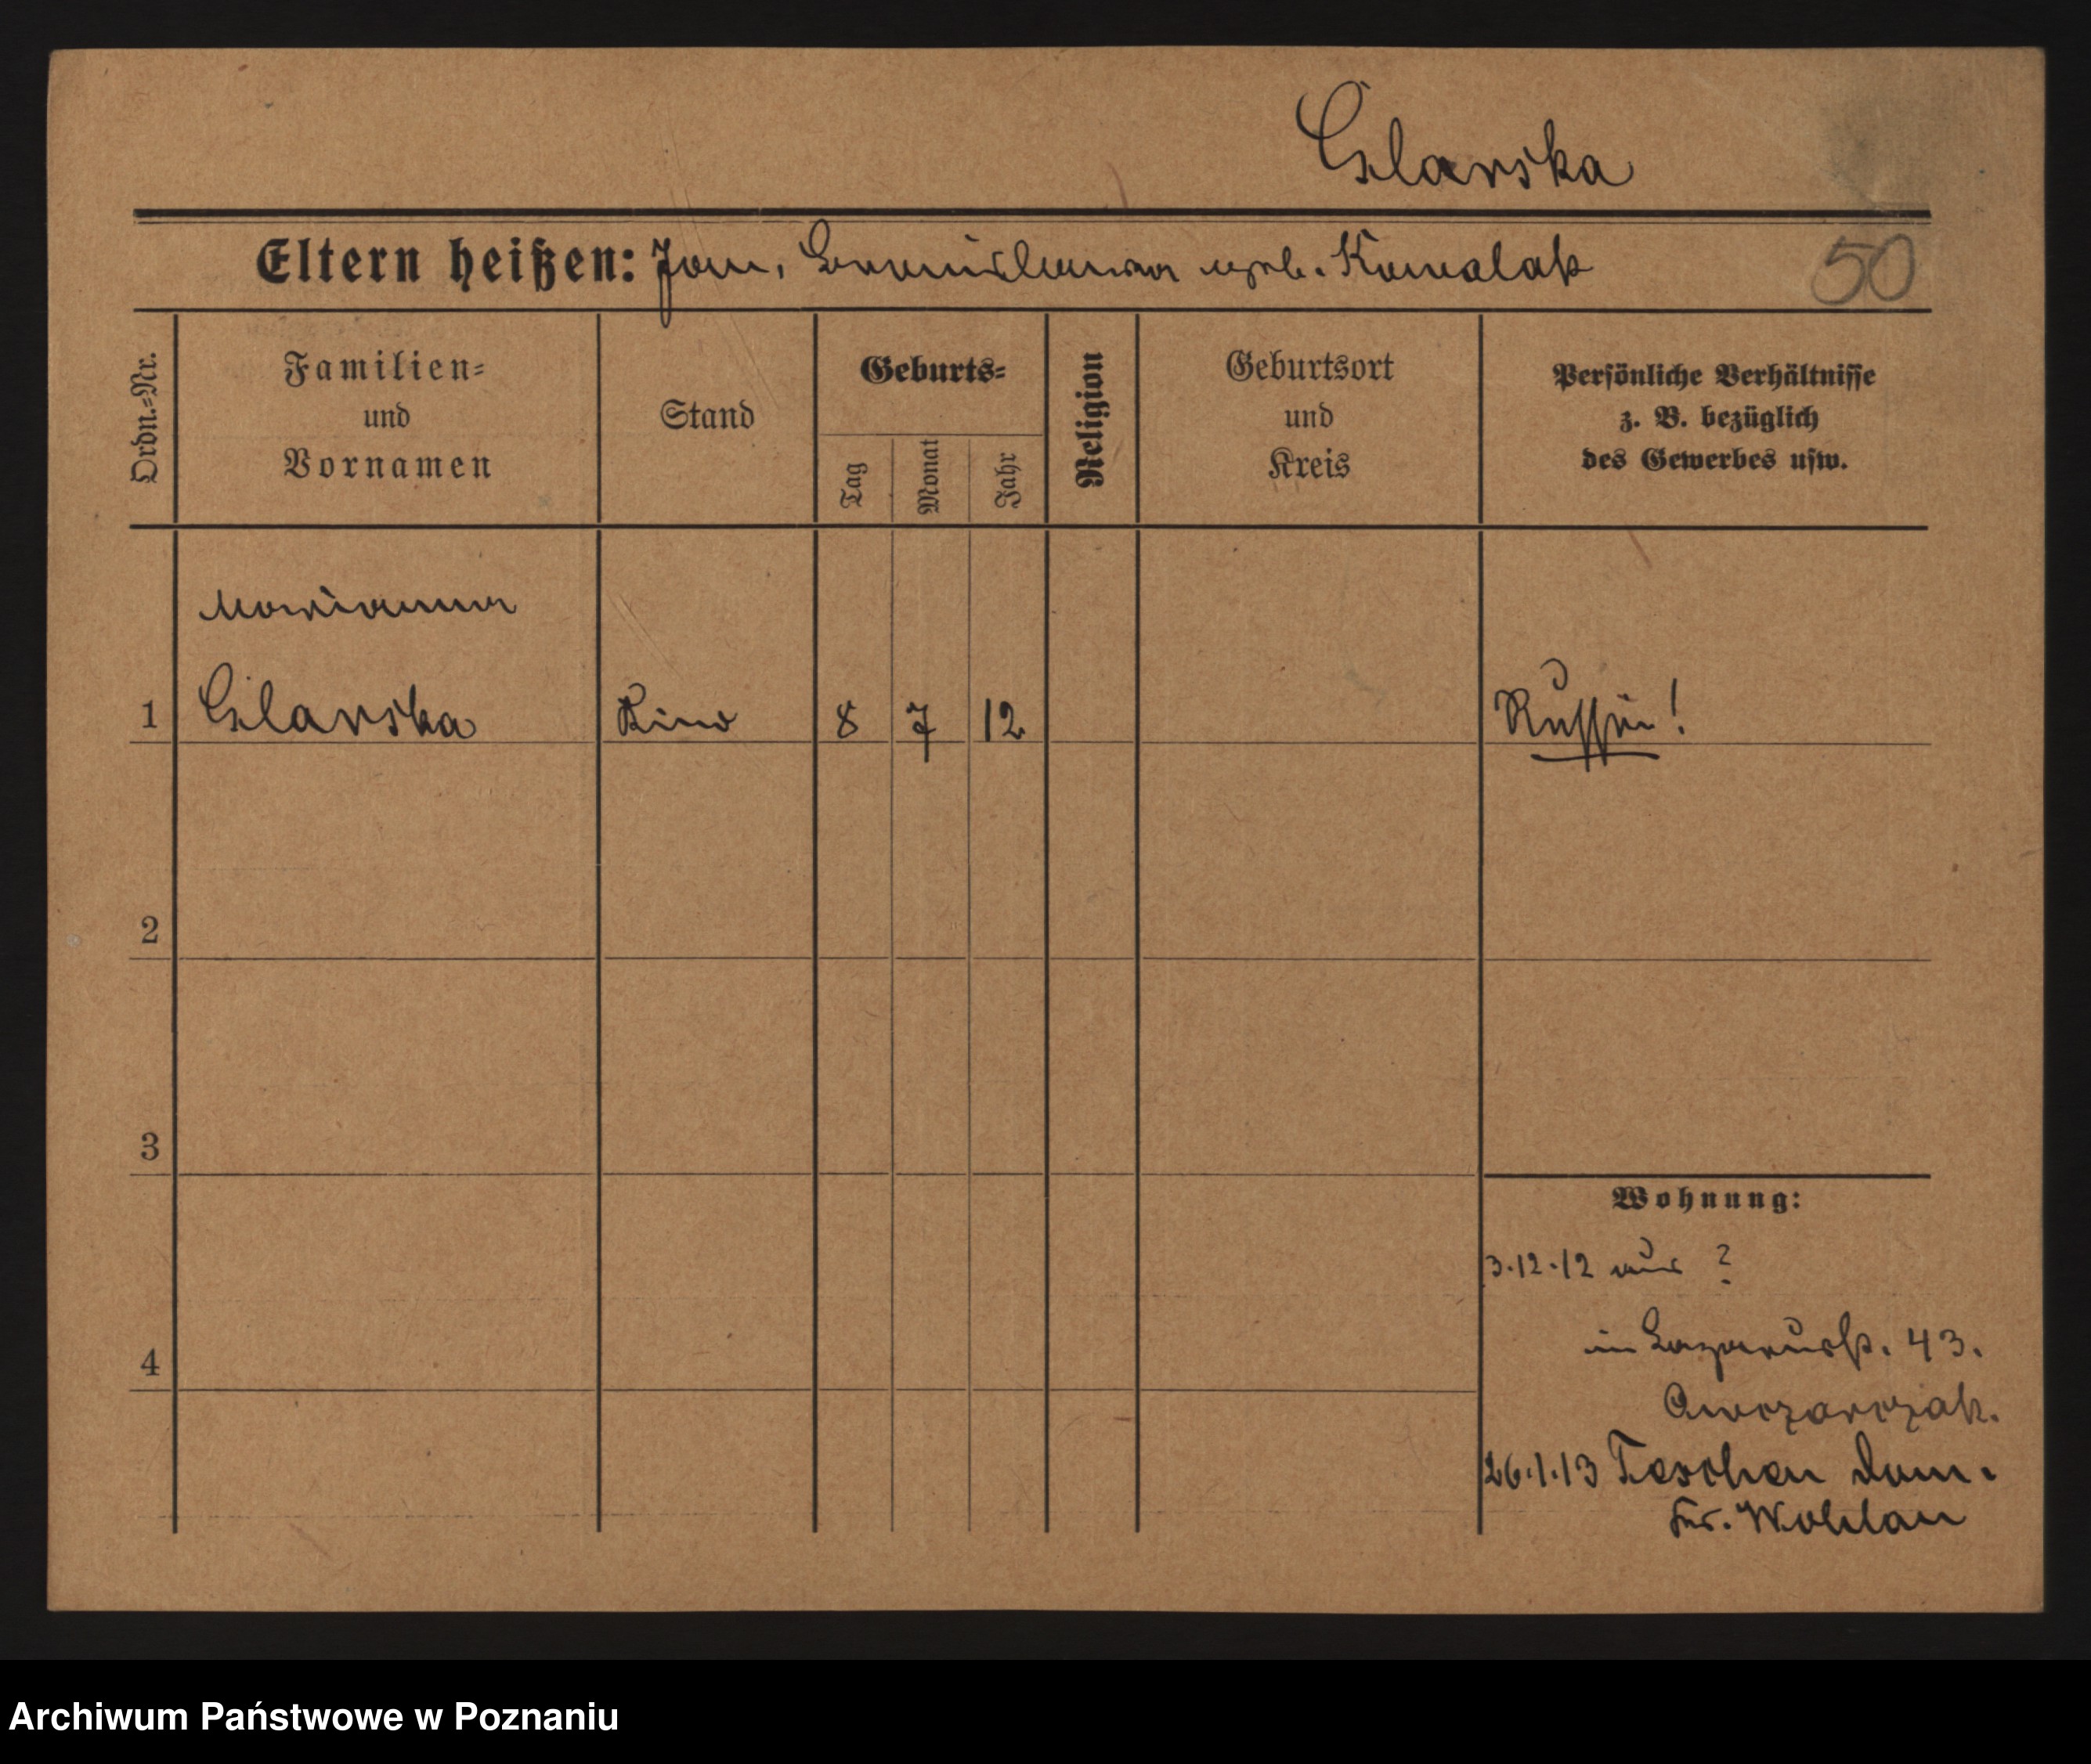 Cslarska
Eltern heißen: Jan, Bronislawa geb. Kowalak
50
Ordn.-Nr.
Familien-
und
Vornamen
Stand
Geburts-
Tag
Monat
Jahr
Religion
Geburtsort
und
Kreis
Persönliche Verhältnisse
z. B. bezüglich
des Gewerbes usw.
Marianna
1 Cslarska Kind 8 7 12 Russin!
2
3
Wohnung:
3.12.12 aus ?
in Lazarusstr. 43.
4
Owczarczak.
26.1.13 Dom.
Kr. Wohlau
Archiwum Państwowe w Poznaniu